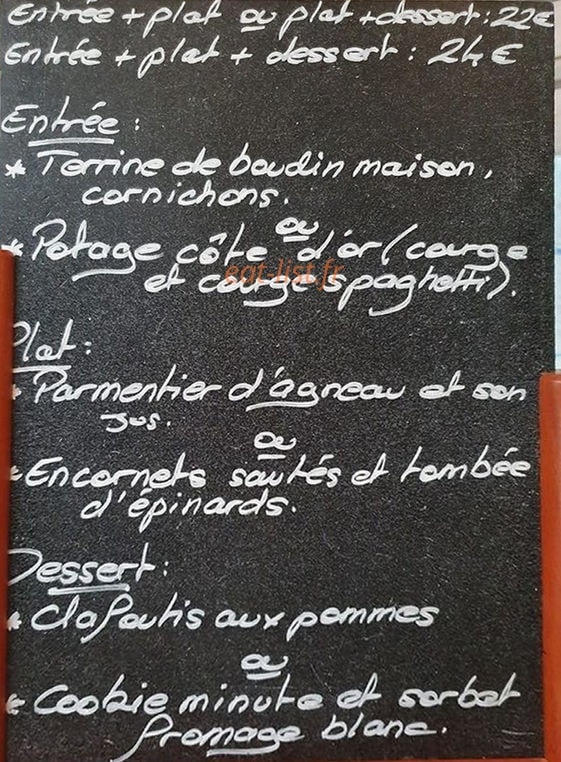 Entrée + plat ou plat + dessert : 22€
Entrée + plat + dessert : 24 €
Entrée :
* Terrine de boudin maison,
cornichons.
ou
* Potage côte d'or (courge
et courge spaghetti).
eat-list.fr
Plat :
* Parmentier d'agneau et son
jus.
ou
* Encornets sautés et tombée
d'épinards.
Dessert :
* Clafoutis aux pommes
ou
* Cookie minute et sorbet
fromage blanc.